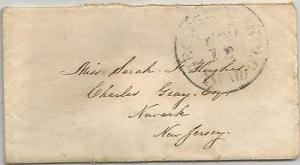 PAID
Miss Sarah H. Hughes,
Charles Gray, Esqr
Newark
New Jersey.